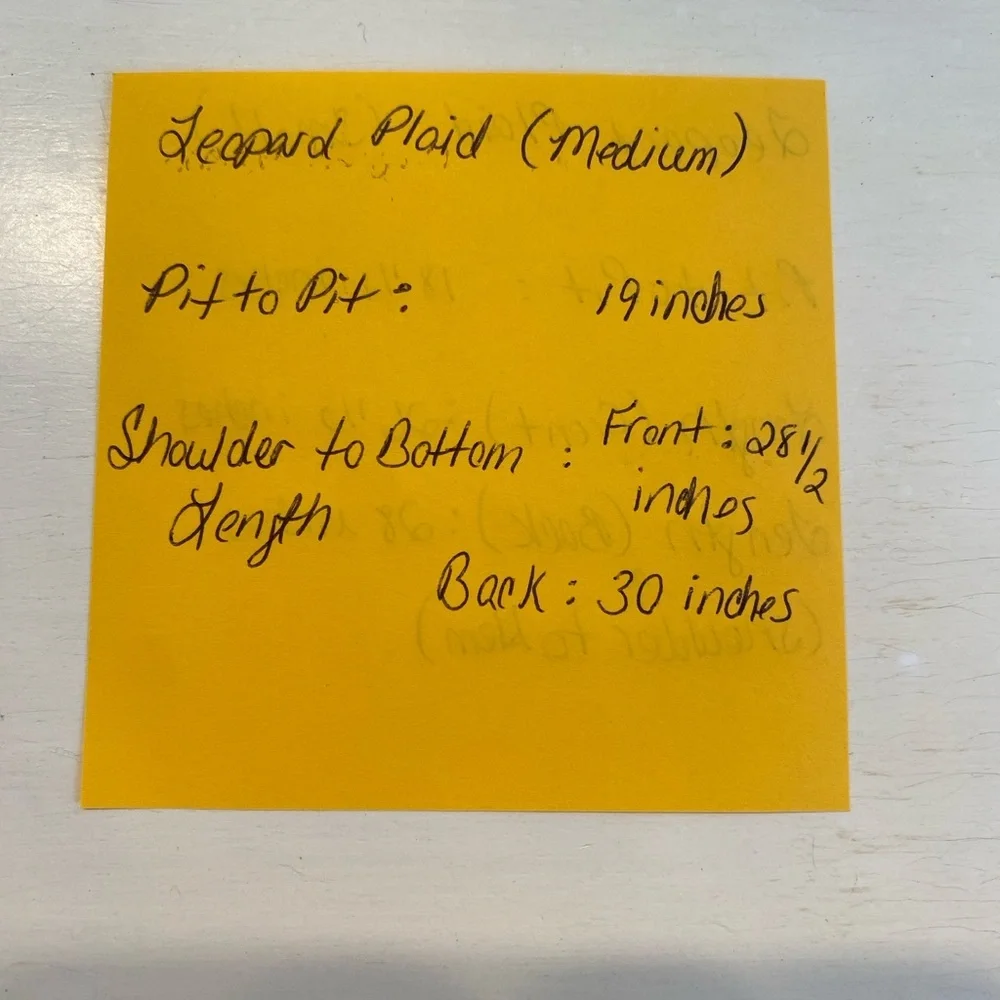 Leopard Plaid (Medium)
Pit to Pit: 19 inches
Shoulder to Bottom: Front: 28 1/2
Length inches
Back: 30 inches